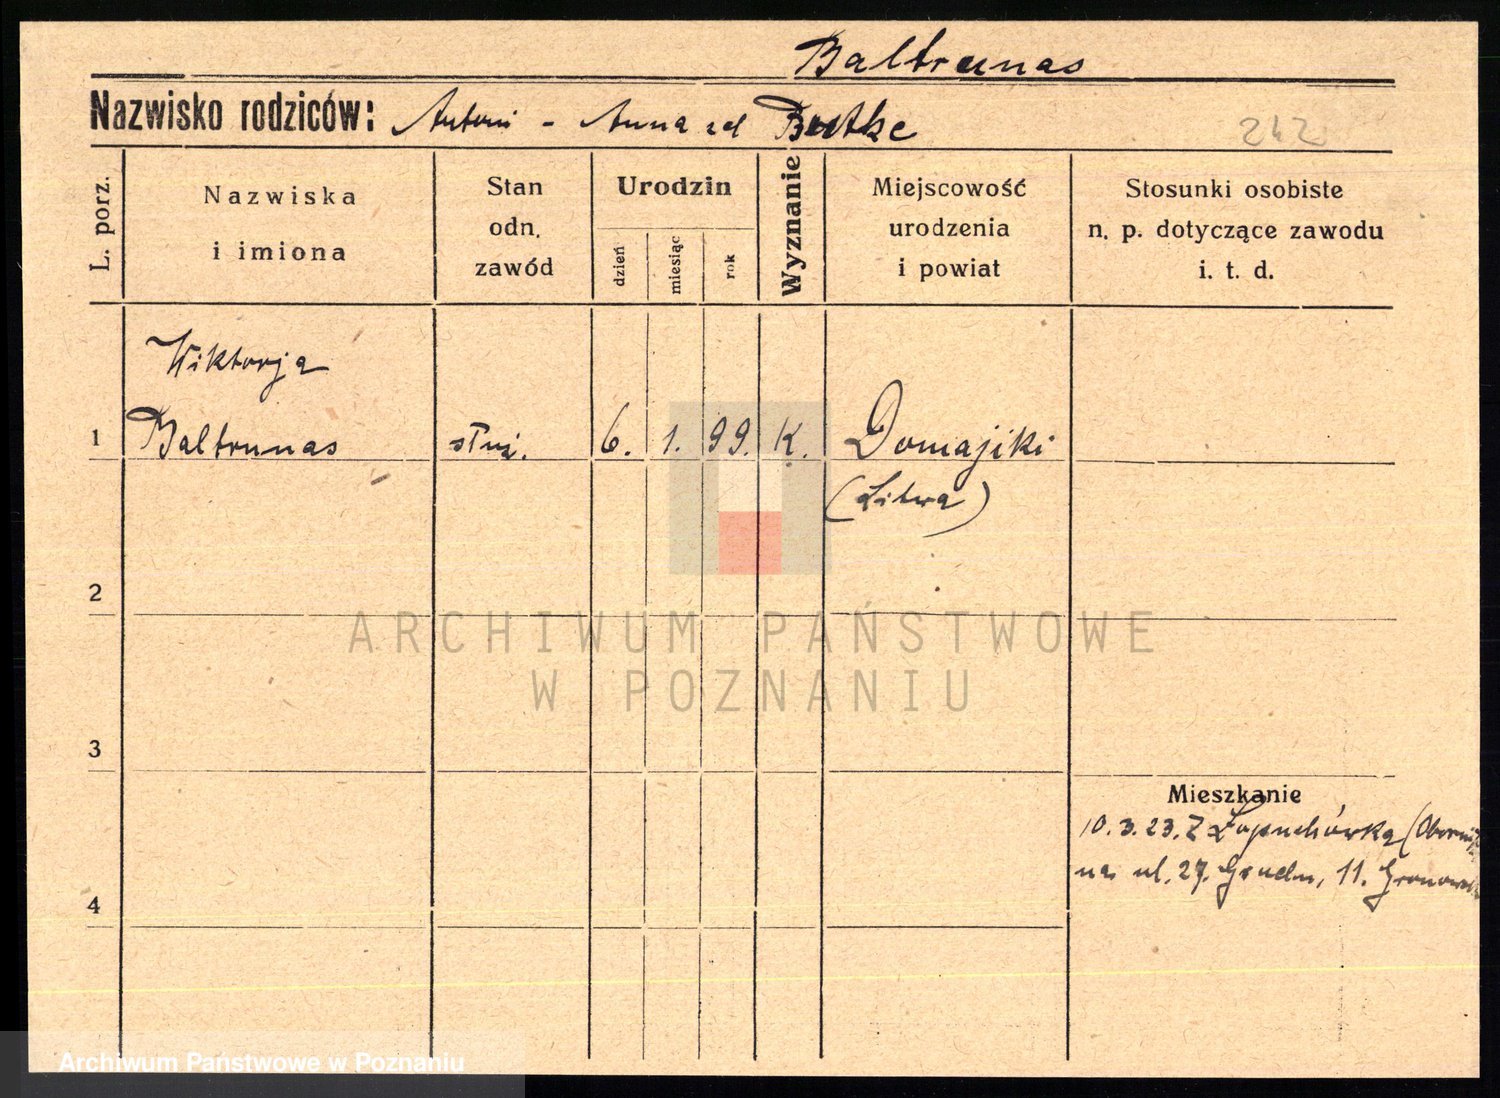 Baltrunas
Nazwisko rodziców: Antoni - Anna zd Butke
242
L. porz.
Nazwiska
i imiona
Stan
odn.
zawód
Urodzin
dzień
miesiąc
rok
Wyznanie
Miejscowość
urodzenia
i powiat
Stosunki osobiste
n. p. dotyczące zawodu
i. t. d.
Wiktorja
1 Baltrunas służ. 6. 1. 99. K. Domajiki
(Litwa)
2
3
4
Mieszkanie
10.3.23. Z Łopuchówka
na ul. 27. Grudn, 11.
ARCHIWUM PAŃSTWOWE
W POZNANIU
Archiwum Państwowe w Poznaniu